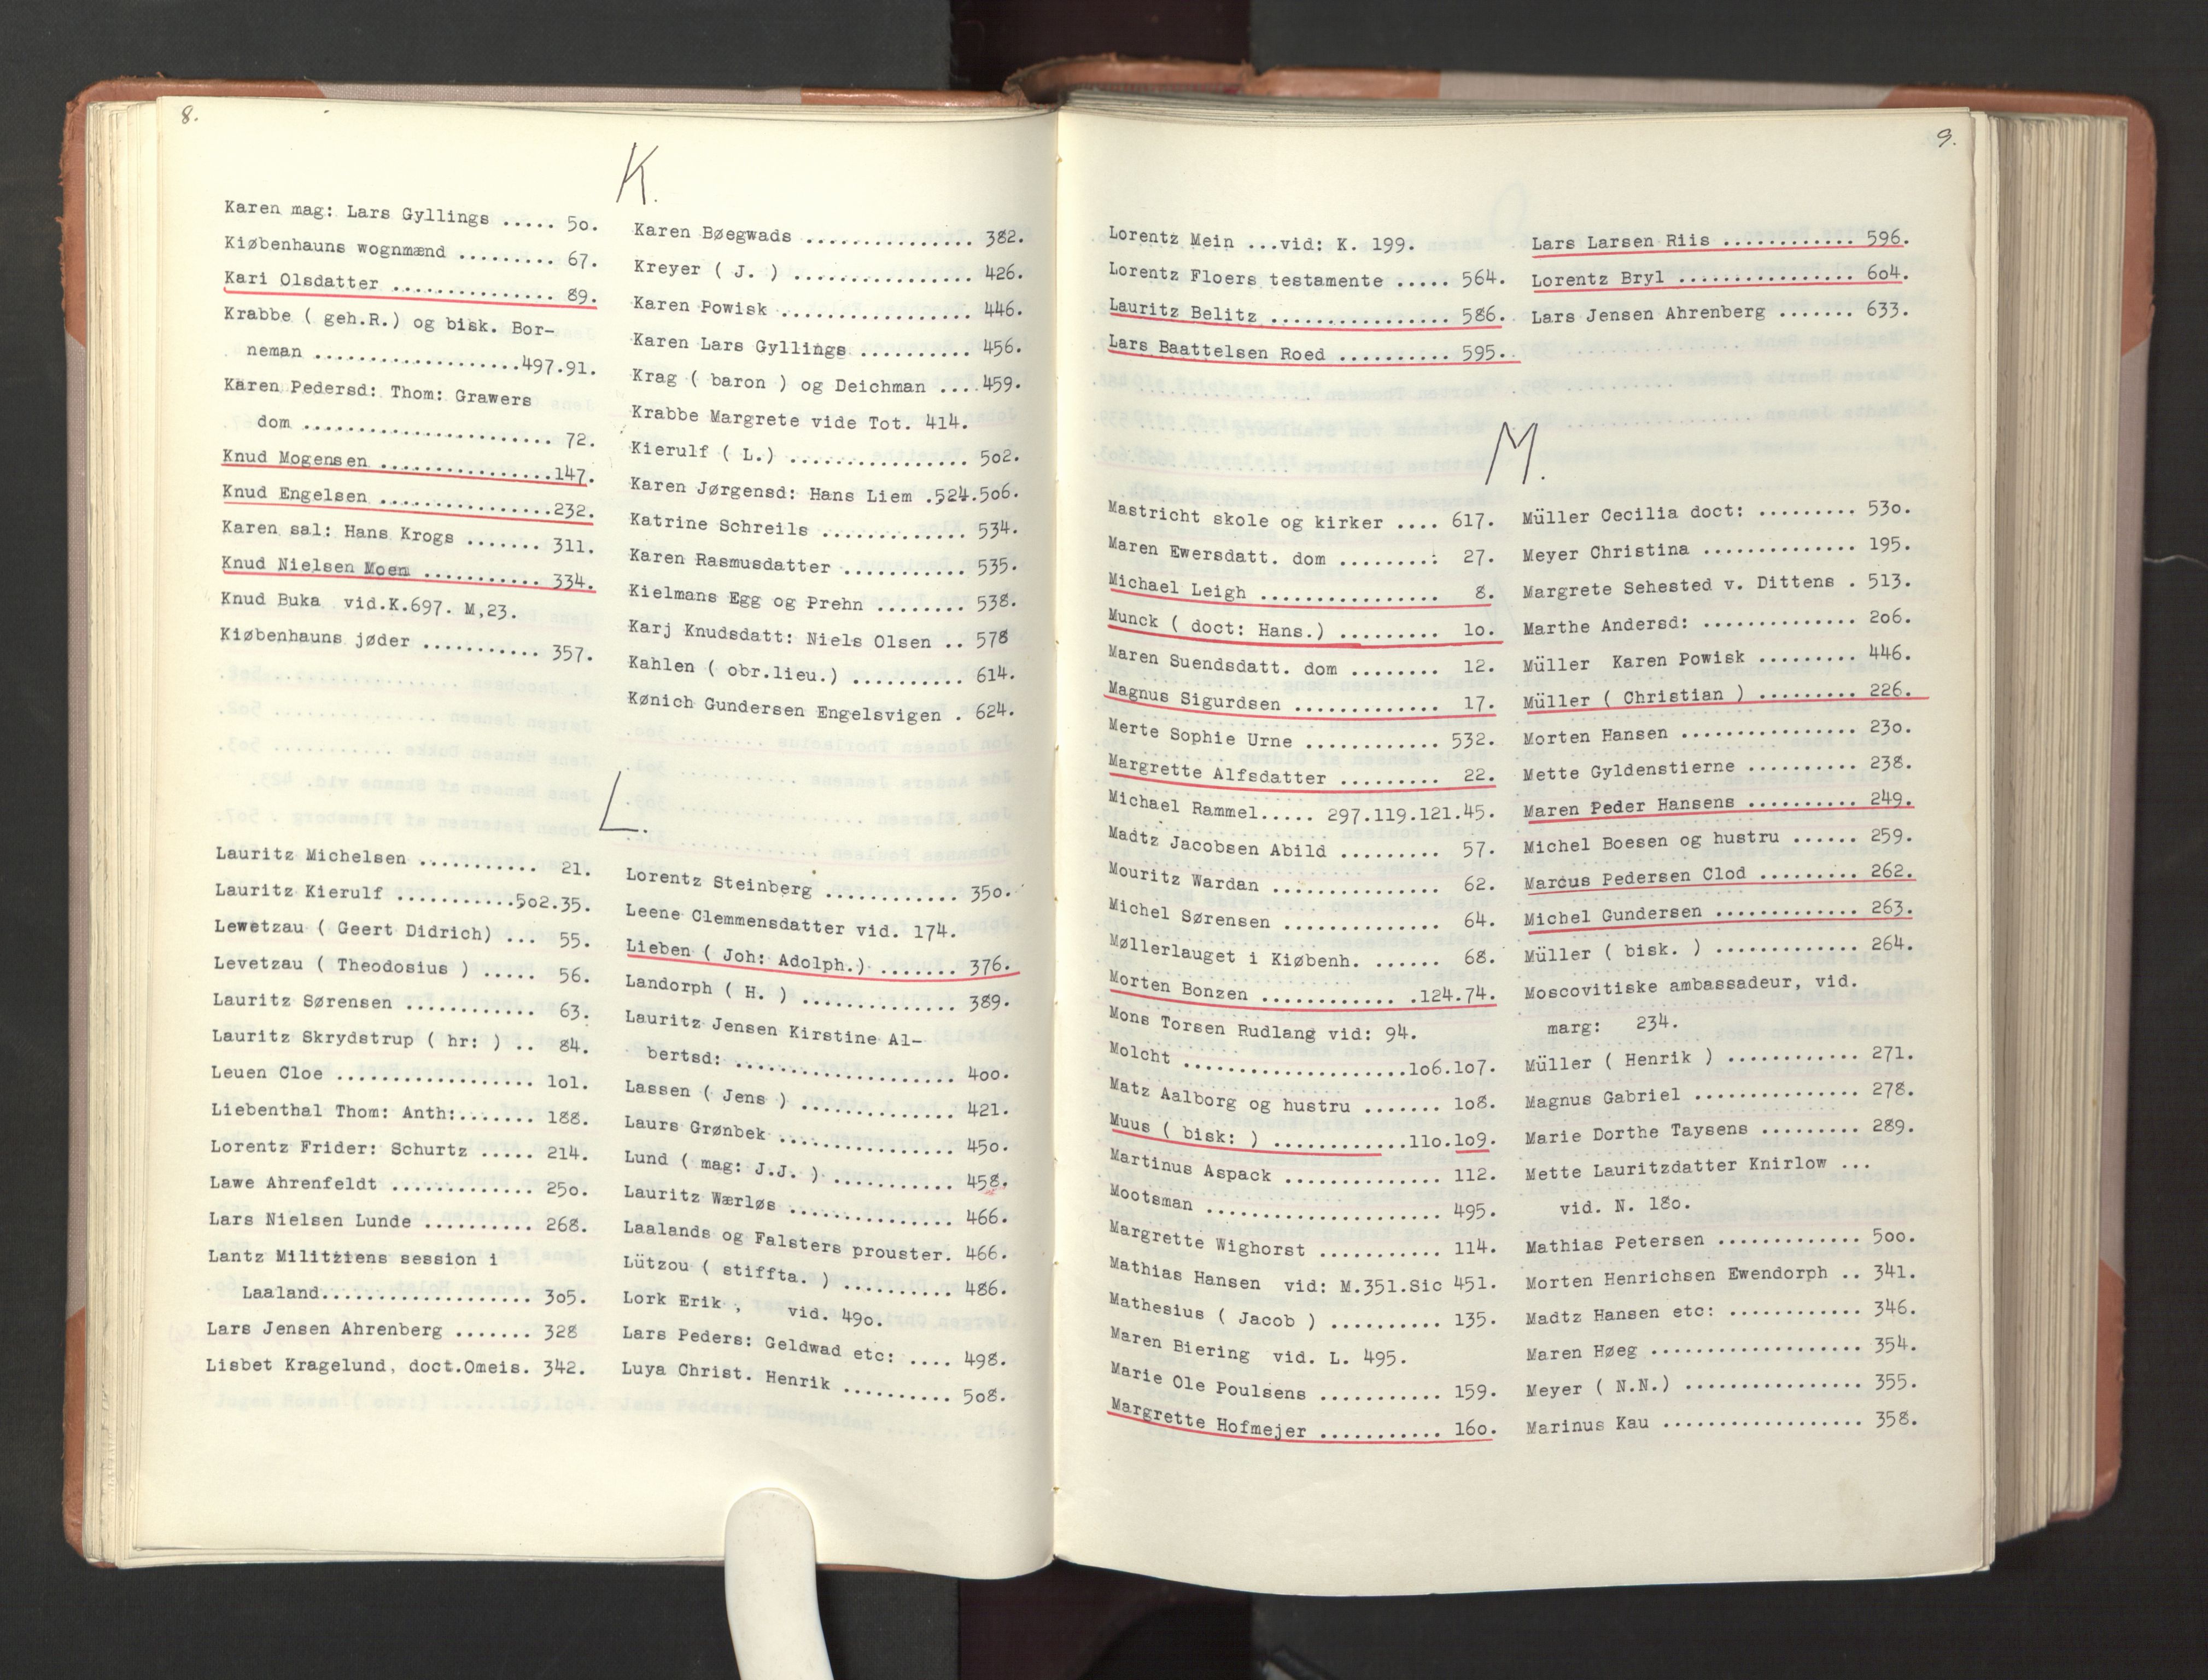 8.
K.
Karen mag: Lars Gyllings ..... 50.
Kiøbenhauns wognmænd ......... 67.
Kari Olsdatter ............... 89.
Krabbe ( geh.R.) og bisk. Bor-
neman ...................497.91.
Karen Pedersd: Thom: Grawers
dom ....................... 72.
Knud Mogensen ................147.
Knud Engelsen ................232.
Karen sal: Hans Krogs ....... 311.
Knud Nielsen Moem ........... 334.
Knud Buka vid.K.697. M,23.
Kiøbenhauns jøder ........... 357.
Karen Bøegwads ............... 382.
Kreyer ( J. ) ................ 426.
Karen Powisk ................. 446.
Karen Lars Gyllings .......... 456.
Krag ( baron ) og Deichman ... 459.
Krabbe Margrete vide Tot. 414.
Kierulf ( L.) ................ 502.
Karen Jørgensd: Hans Liem .524.506.
Katrine Schreils ............. 534.
Karen Rasmusdatter ........... 535.
Kielmans Egg og Prehn ........ 538.
Karj Knudsdatt: Niels Olsen .. 578
Kahlen ( obr.lieu.) .......... 614.
Kønich Gundersen Engelsvigen . 624.
L.
Lauritz Michelsen ........... 21.
Lauritz Kierulf ...........502.35.
Lewetzau ( Geert Didrich) ... 55.
Levetzau ( Theodosius ) ..... 56.
Lauritz Sørensen ............ 63.
Lauritz Skrydstrup ( hr: ) .. 84.
Leuen Cloe ................. 101.
Liebenthal Thom: Anth:....... 188.
Lorentz Frider: Schurtz ..... 214.
Lawe Ahrenfeldt ............ 250.
Lars Nielsen Lunde ......... 268.
Lantz Militziens session i
Laaland.................. 305.
Lars Jensen Ahrenberg ....... 328
Lisbet Kragelund, doct.Omeis. 342.
Lorentz Steinberg ............ 350.
Leene Clemmensdatter vid. 174.
Lieben ( Joh: Adolph.) ....... 376.
Landorph ( H. ) .............. 389.
Lauritz Jensen Kirstine Al-
bertsd: ................... 400.
Lassen ( Jens ) .............. 421.
Laurs Grønbek ................ 450.
Lund ( mag: J.J. ) ........... 458.
Lauritz Wærløs ............... 466.
Laalands og Falsters prouster. 466.
Lützou ( stiffta. ) .......... 486.
Lork Erik , vid. 490.
Lars Peders: Geldwad etc: .... 498.
Luya Christ. Henrik .......... 508.
9.
Lorentz Mein ...vid: K. 199.
Lorentz Floers testamente ..... 564.
Lauritz Belitz ................ 586.
Lars Baattelsen Roed .......... 595.
Lars Larsen Riis ............ 596.
Lorentz Bryl ................ 604.
Lars Jensen Ahrenberg ....... 633.
M.
Mastricht skole og kirker .... 617.
Maren Ewersdatt. dom ........: 27.
Michael Leigh ................ 8.
Munck ( doct: Hans.) ......... 10.
Maren Suendsdatt. dom ........ 12.
Magnus Sigurdsen ............. 17.
Merte Sophie Urne ............ 532.
Margrette Alfsdatter ......... 22.
Michael Rammel..... 297.119.121.45.
Madtz Jacobsen Abild ......... 57.
Mouritz Wardan ............... 62.
Michel Sørensen .............. 64.
Møllerlauget i Kiøbenh. ...... 68.
Morten Bonzen ............ .124.74.
Mons Torsen Rudlang vid: 94.
Molcht ....................106.107.
Matz Aalborg og hustru ....... 108.
Muus ( bisk: ) ............110.109.
Martinus Aspack .............. 112.
Mootsman ..................... 495.
Margrette Wighorst ........... 114.
Mathias Hansen vid: M.351.Sic 451.
Mathesius ( Jacob ) .......... 135.
Maren Biering vid. L. 495.
Marie Ole Poulsens ........... 159.
Margrette Hofmejer ........... 160.
Müller Cecilia doct: ......... 530.
Meyer Christina .............. 195.
Margrete Sehested v. Dittens . 513.
Marthe Andersd: .............. 206.
Müller Karen Powisk ......... 446.
Müller ( Christian ) ......... 226.
Morten Hansen ................ 230.
Mette Gyldenstierne .......... 238.
Maren Peder Hansens .......... 249.
Michel Boesen og hustru ...... 259.
Marcus Pedersen Clod ......... 262.
Michel Gundersen ............. 263.
Müller ( bisk. ) ............. 264.
Moscovitiske ambassadeur, vid.
marg: 234.
Müller ( Henrik ) ............ 271.
Magnus Gabriel ............... 278.
Marie Dorthe Taysens ......... 289.
Mette Lauritzdatter Knirlow ...
vid. N. 180.
Mathias Petersen ............. 500.
Morten Henrichsen Ewendorph .. 341.
Madtz Hansen etc: ............ 346.
Maren Høeg ................... 354.
Meyer ( N.N.) ................ 355.
Marinus Kau .................. 358.